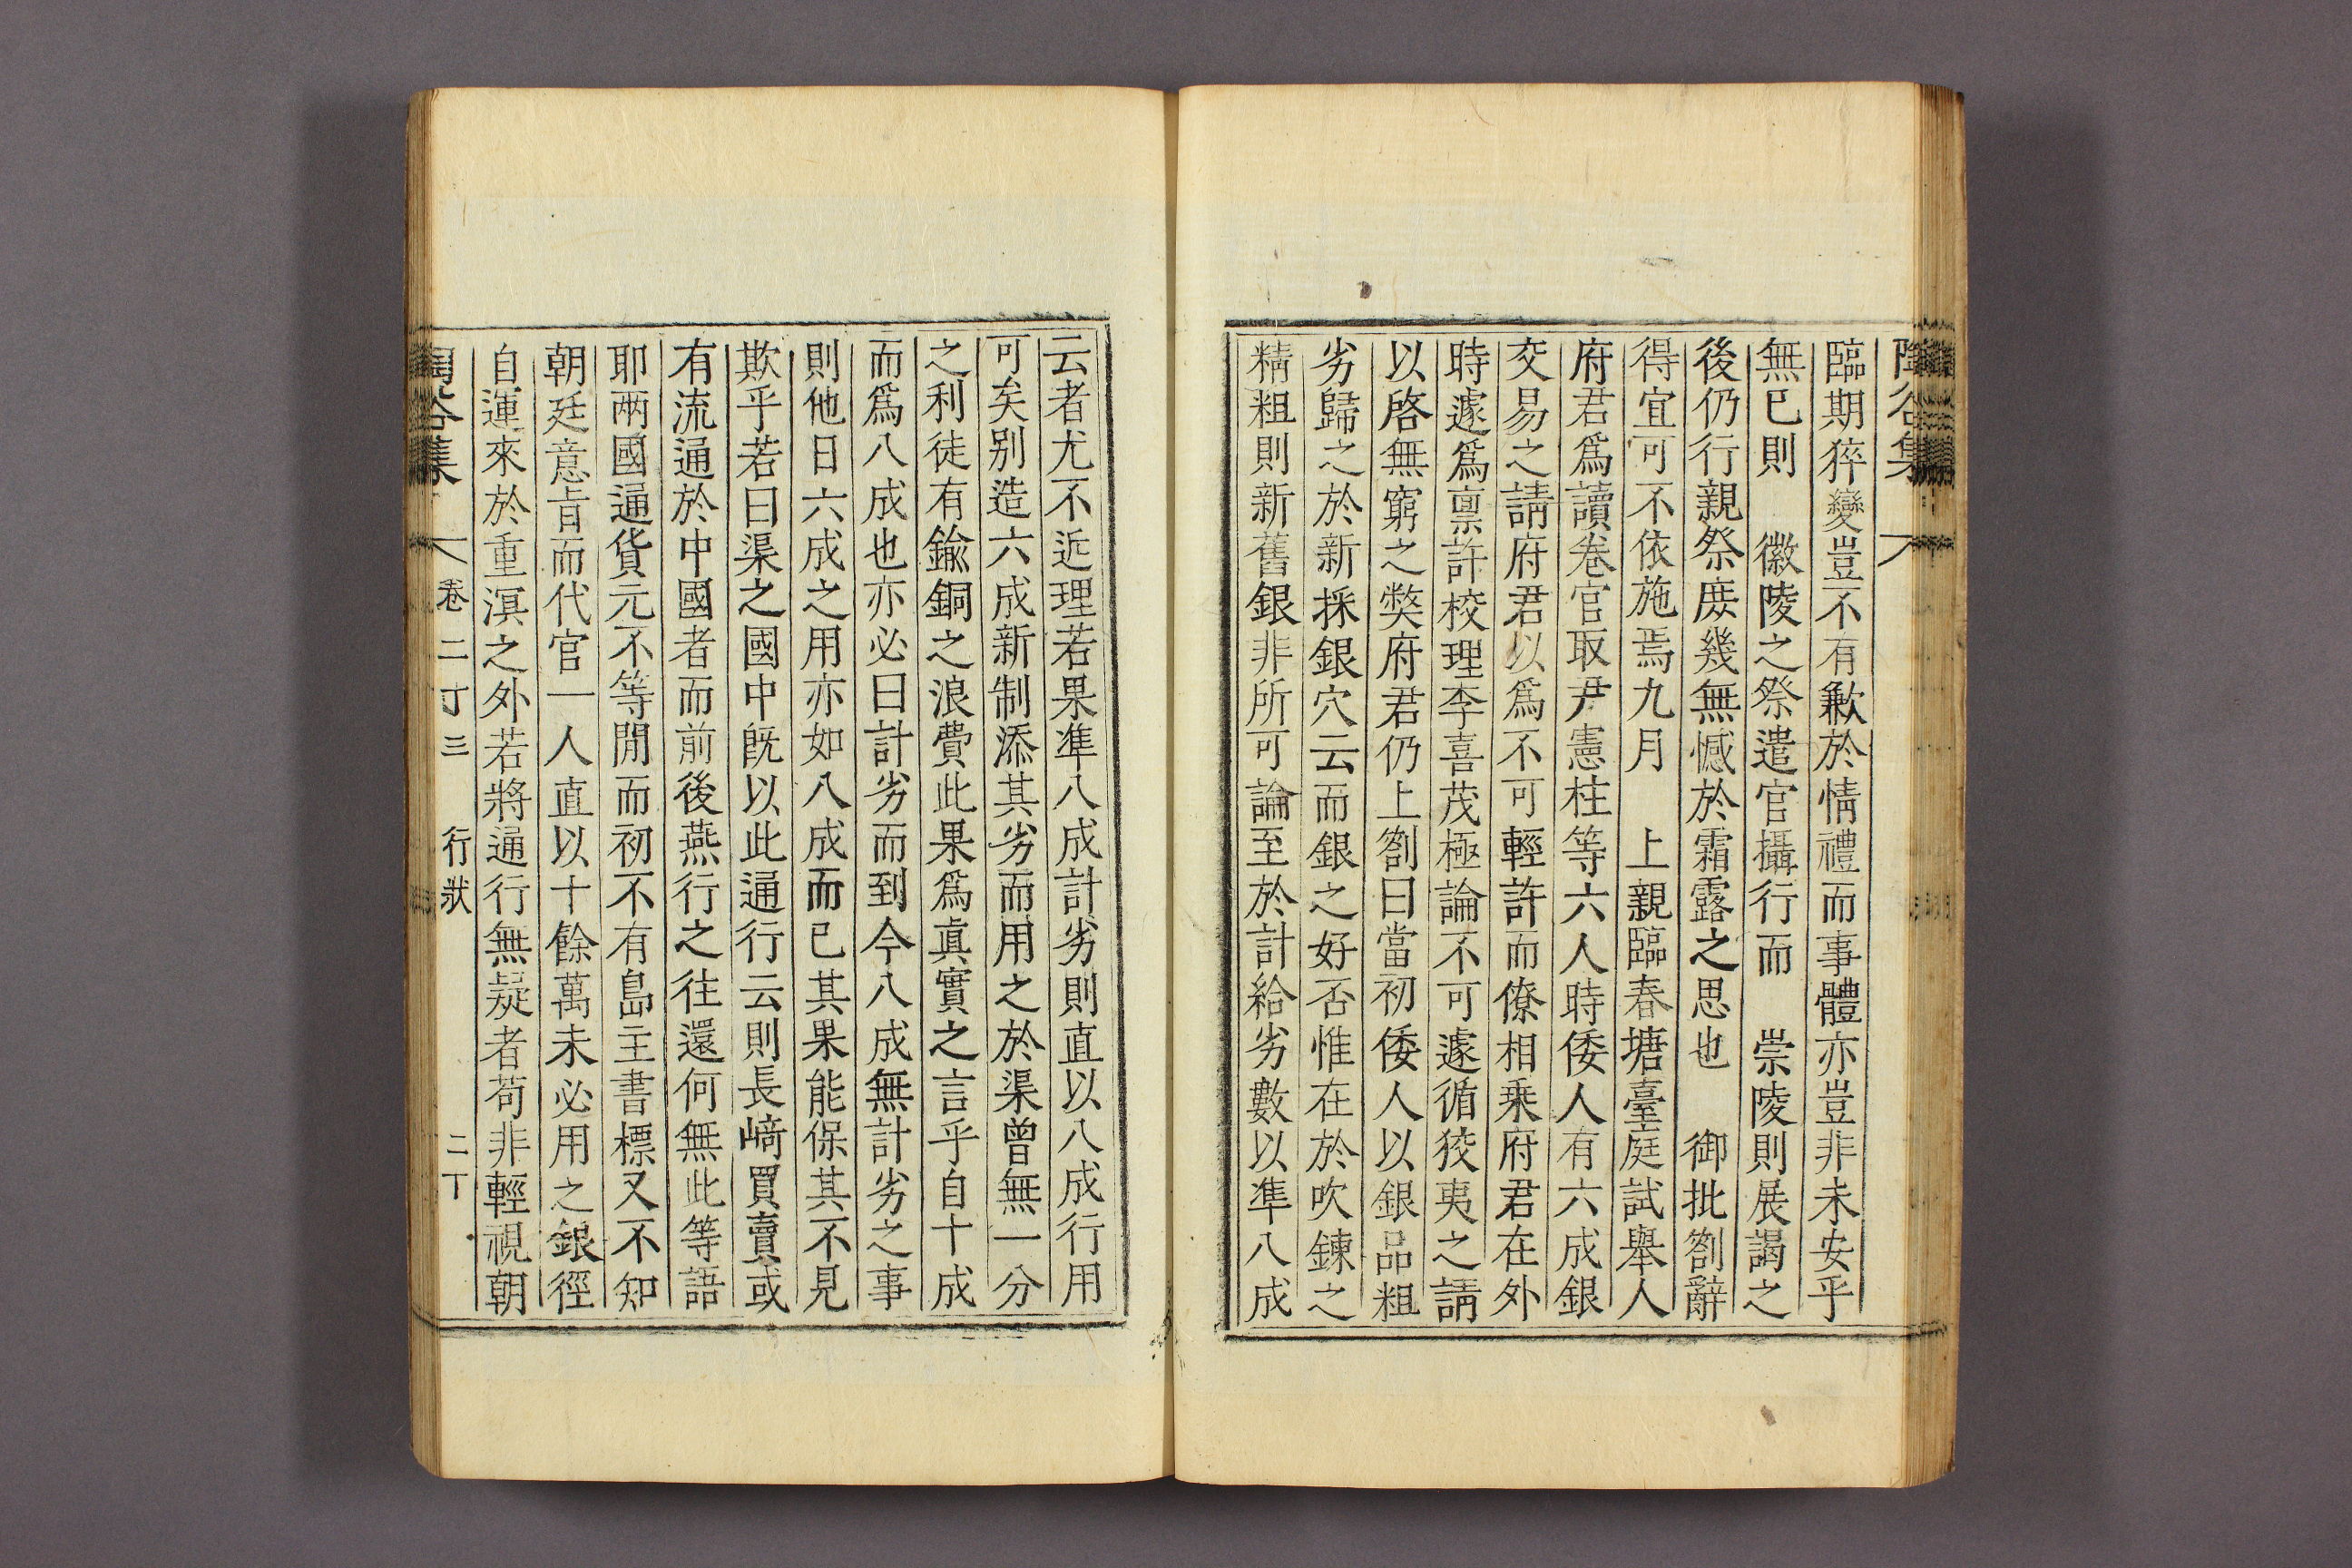 陶谷集
臨期猝變豈不有歉於情禮而事體亦豈非未安乎
無已則 徽陵之祭遣官攝行而 崇陵則展謁之
後仍行親祭庶幾無憾於霜露之思也 御批劄辭
得宜可不依施焉九月 上親臨春塘臺庭試舉人
府君爲讀卷官取尹憲柱等六人時倭人有六成銀
交易之請府君以爲不可輕許而僚相乘府君在外
時遽爲禀許校理李喜茂極論不可遽循狡夷之請
以啓無窮之獘府君仍上劄曰當初倭人以銀品粗
劣歸之於新採銀穴云而銀之好否惟在於吹鍊之
精粗則新舊銀非所可論至於計給劣數以準八成
云者尤不近理若果準八成計劣則直以八成行用
可矣別造六成新制添其劣而用之於渠曾無一分
之利徒有鍮銅之浪費此果爲眞實之言乎自十成
而爲八成也亦必曰計劣而到今八成無計劣之事
則他日六成之用亦如八成而已其果能保其不見
欺乎若曰渠之國中既以此通行云則長崎買賣或
有流通於中國者而前後燕行之往還何無此等語
耶兩國通貨元不等閒而初不有島主書標又不知
朝廷意旨而代官一人直以十餘萬未必用之銀徑
自運來於重溟之外若將通行無疑者苟非輕視朝
陶谷集 卷二丁三 行狀 二丁